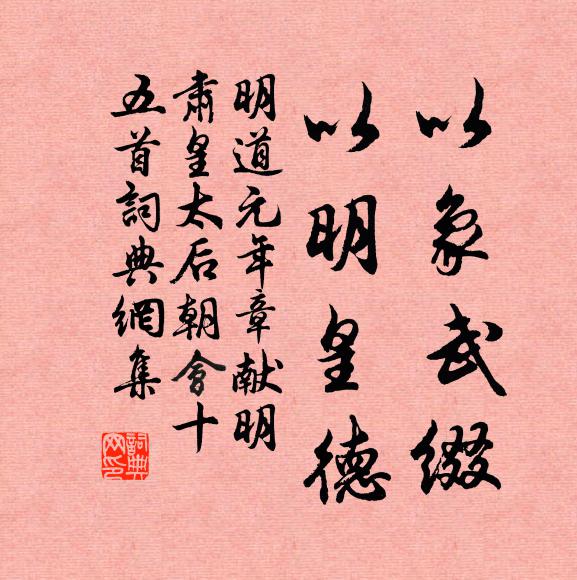 以象武綴
以明皇德
明道元年章献明
肅皇太后朝會十
五首詞典網集
詞典網印